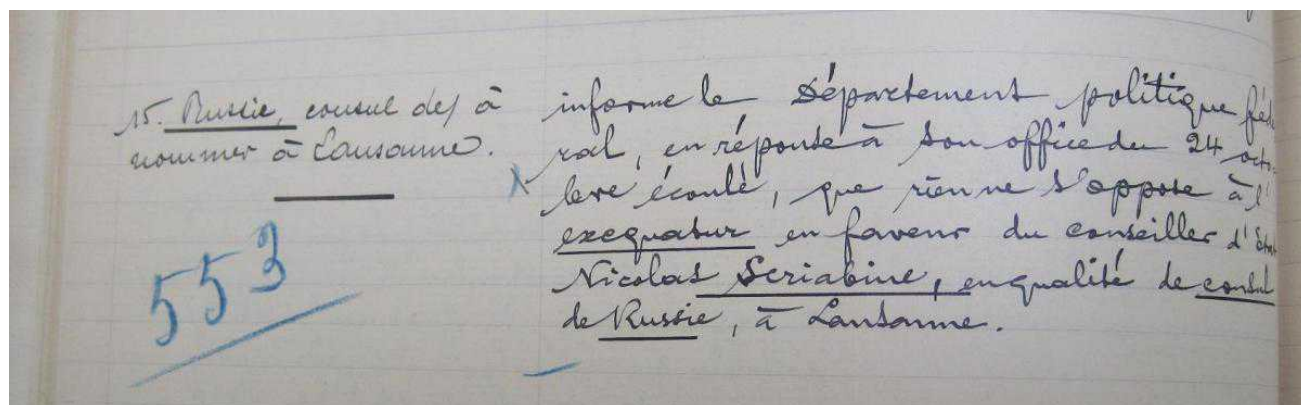 15. Russie, consul de) à
nommer à Lausanne.
553
informe le Département politique fédé
ral, en réponse à son office du 24 octo-
bre écoulé, que rien ne s'oppose à l'
exequatur en faveur du conseiller d'Etat
Nicolas Scriabine, en qualité de consul
de Russie, à Lausanne.